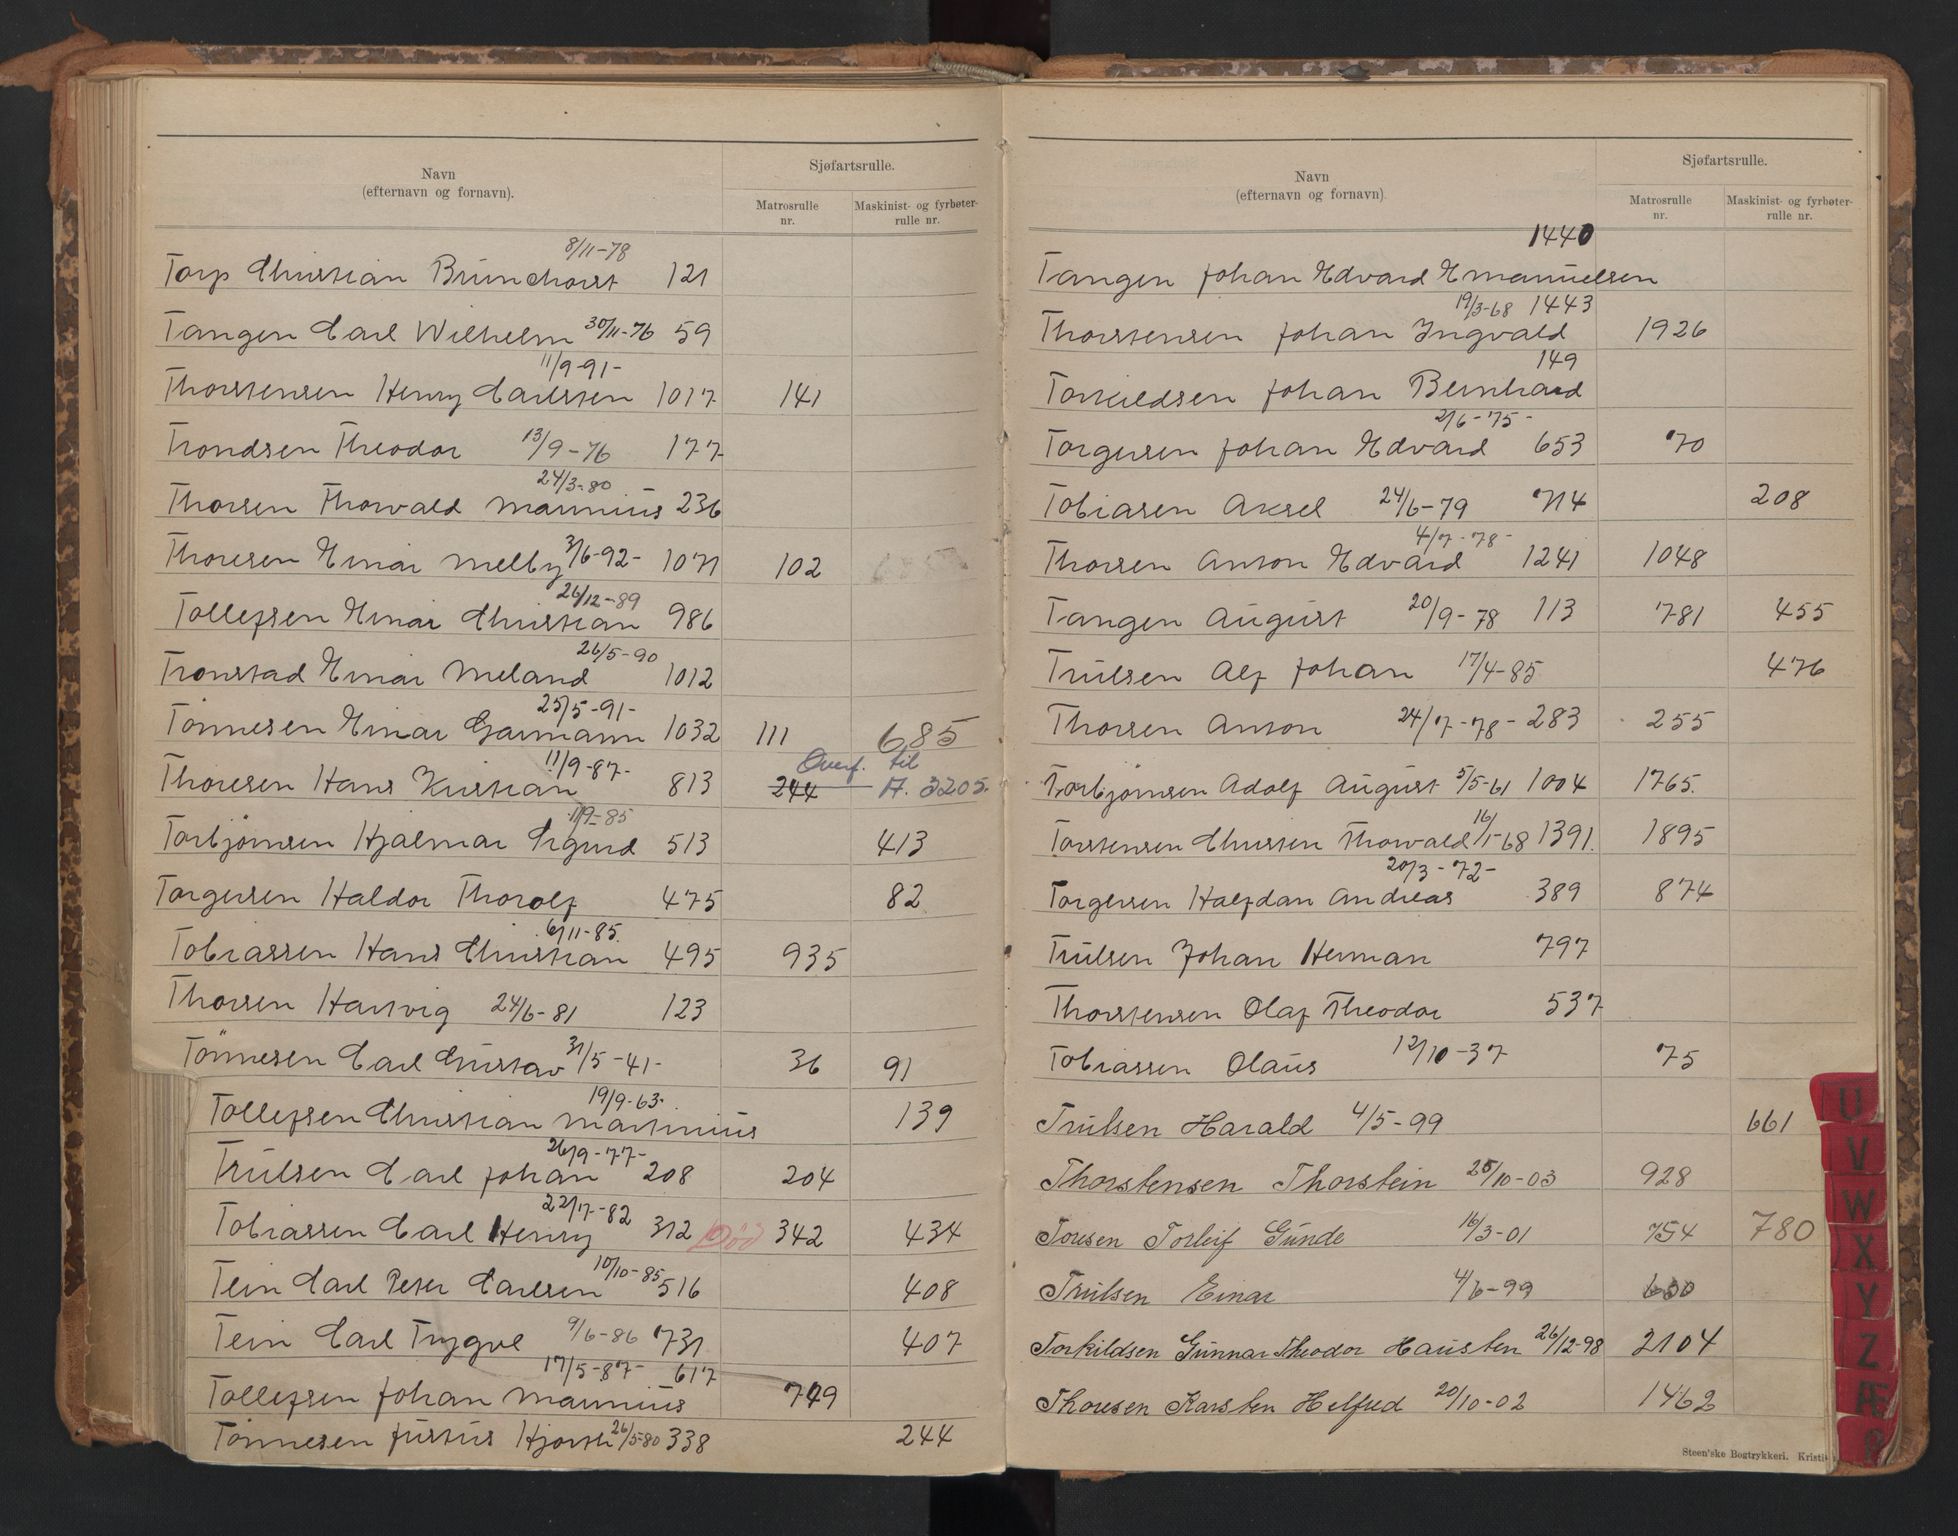 Navn
(efternavn og fornavn).
Sjøfartsrulle.
Matrosrulle
nr.
Maskinist- og fyrbøter-
rulle nr.
8/11-78
Torp Christian Brunchorst 121
Tangen Carl Wilhelm 30/11-76 59
11/9-91-
Thorstensen Henry Carlsten 1017 141
Trondsen Theodor 13/9-76 177
24/3-80
Thorsen Thorvald Marinius 236
Thoresen Einar Melby 3/6-92- 1071 102
26/12-89
Tollefsen Einar Christian 986
26/5-90
Tronstad Einar Meland 1012
25/5-91-
Tönnesen Einar Garmann 1032 111 685
11/9-87- Overf. til
Thoresen Hans Kristian 813 244 A. 3205.
11/9-85
Torbjörnsen Hjalmar Sigurd 513 413
Torgersen Haldor Thorolf 475 82
6/11-85.
Tobiassen Hans Christian 495 935
Thorsen Hartvig 24/6-81 123
Tönnesen Carl Gustav 31/5-41- 36 91
19/9-63.
Tollefsen Christian Martinius 139
26/9-77-
Trulsen Carl Johan 208 204
22/7-82
Tobiassen Carl Henry 312 Död 342 434
10/10-85
Tein Carl Peter Carlsen 516 408
Tein Carl Trygve 9/6-86 731 407
17/5-87- 617
Tollefsen Johan Marinius 749
Tönnesen Justus Hjorth 26/5-80 338 244
Navn
(efternavn og fornavn)
Sjøfartsrulle.
Matrosrulle
nr.
Maskinist- og fyrbøter-
rulle nr.
1440
Tangen Johan Edvard Emanuelsen
19/3-68 1443
Thorstensen Johan Ingvald 1926
149
Torkildsen Johan Bernhard
2/6-75-
Torgersen Johan Edvard 653 70
Tobiasen Aksel 24/6-79 714 208
4/7-78-
Thorsen Anton Edvard 1241 1048
Tangen August 20/9-78 113 781 455
Trulsen Alf Johan 17/4-85 476
Thorsen Anton 24/7-78- 283 255
Torbjörnsen Adolf August 5/5-61 1004 1765.
Torstensen Christen Thorvald 16/1-68 1391. 1895
20/3-72-
Torgersen Halfdan Andreas 389 874
Trulsen Johan Herman 797
Thorstensen Olaf Theodor 537
Tobiassen Olaus 12/10-37 75
Trulsen Harald 4/5-99 661
Thorstensen Thorstein 25/10-03 928
Toresen Torleif Gunde 16/3-01 754 780
Trulsen Einar 4/6-99 600
Torkildsen Gunnar Theodor Hausten 26/12-98 2104
Thoresen Karsten Helfred 20/10-02 1462
Steen'ske Bogtrykkeri. Kristi
U
V
W
X
Y
Z
Æ